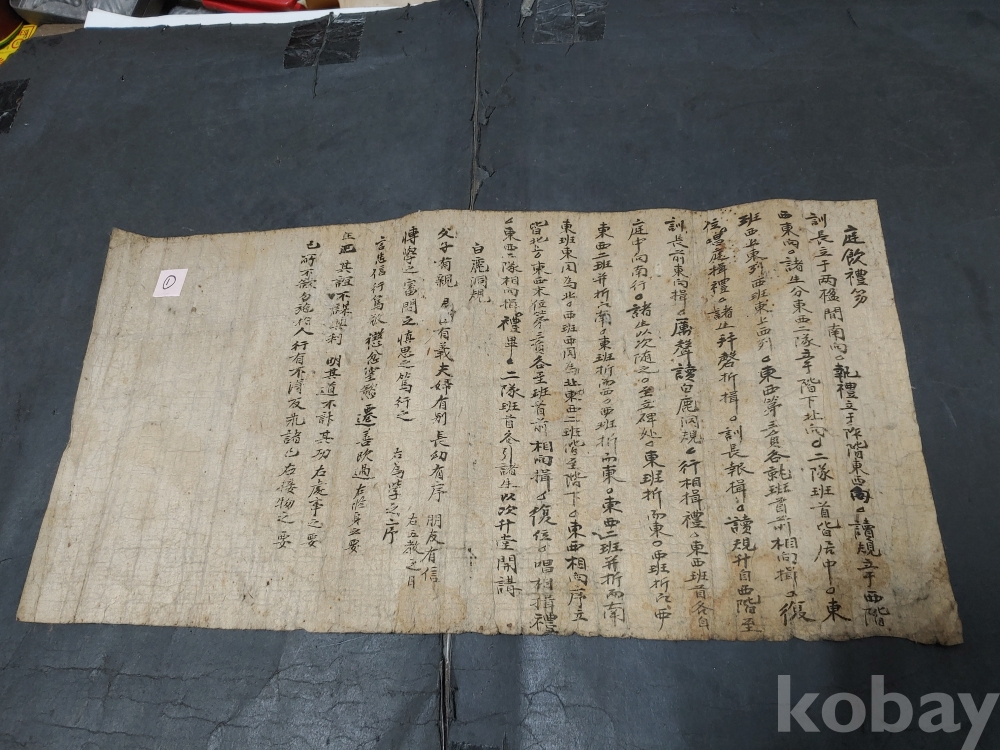 庭飮禮笏
訓長立于兩楹間南向○執禮立于阼階東西向○讀規立于西階
西東向○諸生分東西二隊立于階下北向○二隊班首皆居中○東
班西上東列西班東上西列○東西第五員各就班首前相向揖○復
位唱庭揖禮○諸生並磬折揖○訓長報揖○讀規升自西階至
訓長前東向揖○厲聲讀白鹿洞規○行相揖禮○東西班首各自
庭中向南行○諸生以次隨之○至立碑处○東班折而東○西班折而西
東西二班并折而南○東班折而西○西班折而東○東西二班并折而南
東班東周爲北○西班西周爲北東西二班階至階下○東西相向序立
皆北上東西末位第三員各至班首前相向揖○復位○唱相揖禮
○東西二隊相向揖禮畢○二隊班首各引諸生以次升堂開講
白鹿洞規
父子有親 君臣有義 夫婦有別 長幼有序 朋友有信 右五教之目
博學之 審問之 慎思之 篤行之 右爲學之序
言忠信行篤敬 懲忿窒慾 遷善改過 右修身之要
正 其誼不謀其利 明其道不計其功 右處事之要
己所不欲勿施於人 行有不得反求諸己 右接物之要
①
kobay